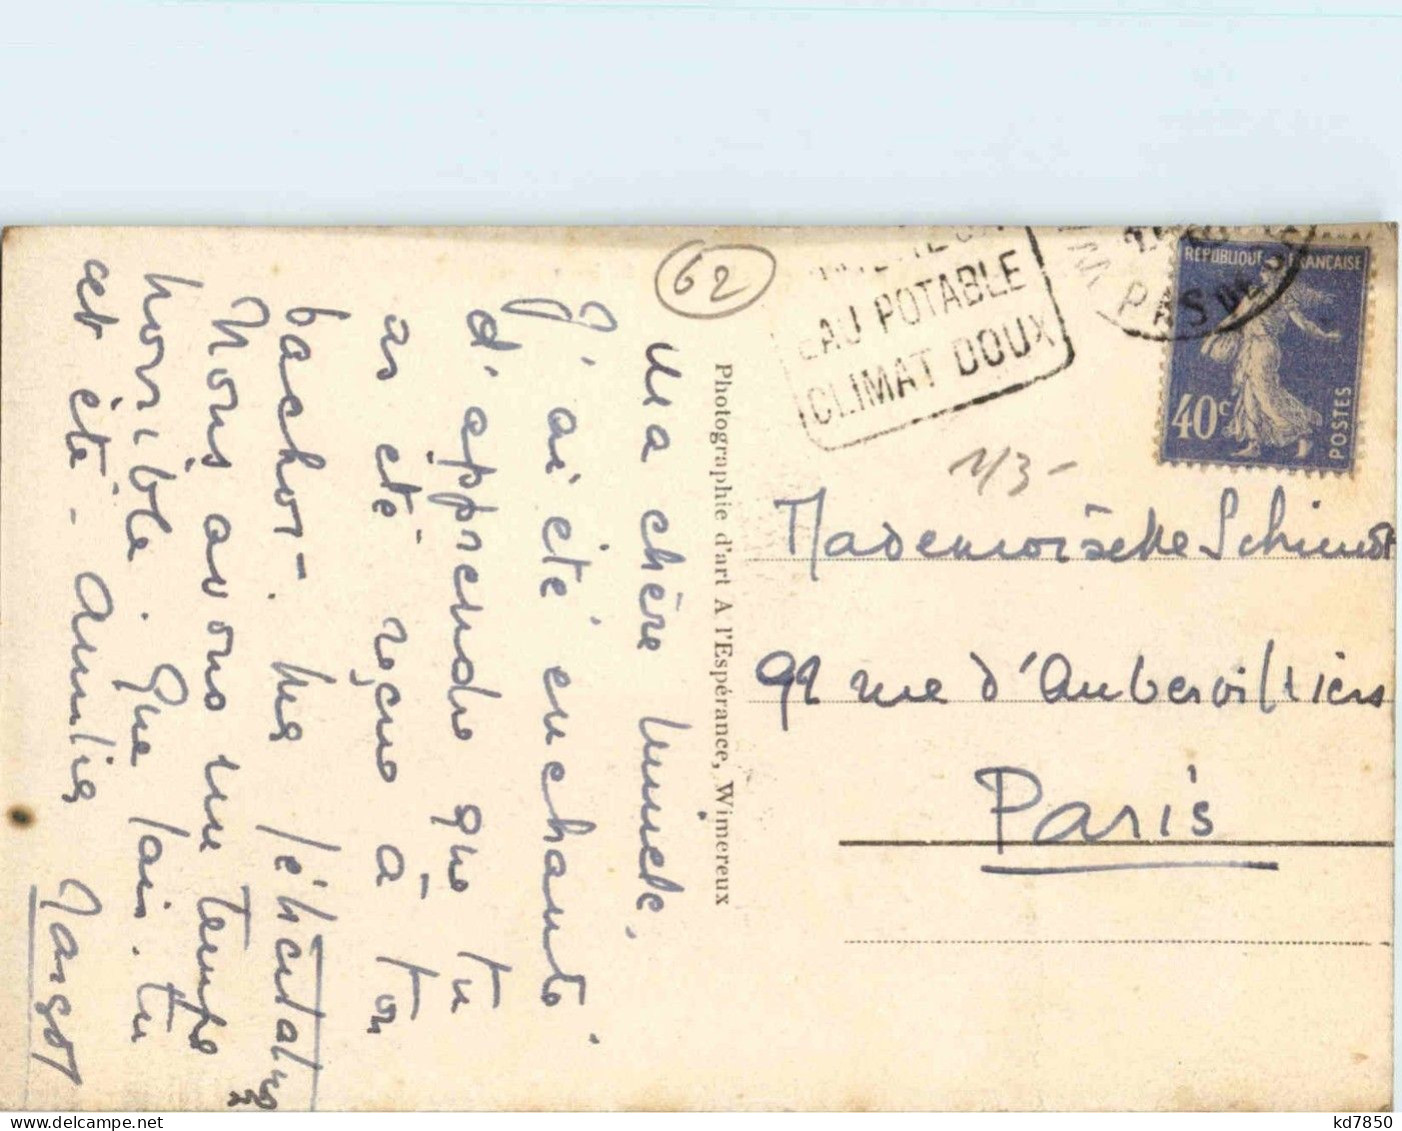 62
EAU POTABLE
CLIMAT DOUX
PAS DE
REPUBLIQUE FRANÇAISE
40c
POSTES
1/3-
Mademoiselle Schimdt
92 rue d'Aubervilliers
Paris
Photographie d'art A l'Espérance, Wimereux
Ma chère
J'ai été enchanté
d'apprendre que tu
as été reçue à ton
bachot. Mes félicitations
Nous avons une temps
horrible. Que fais-tu
cet été - Amitiés
Margot
kd7850